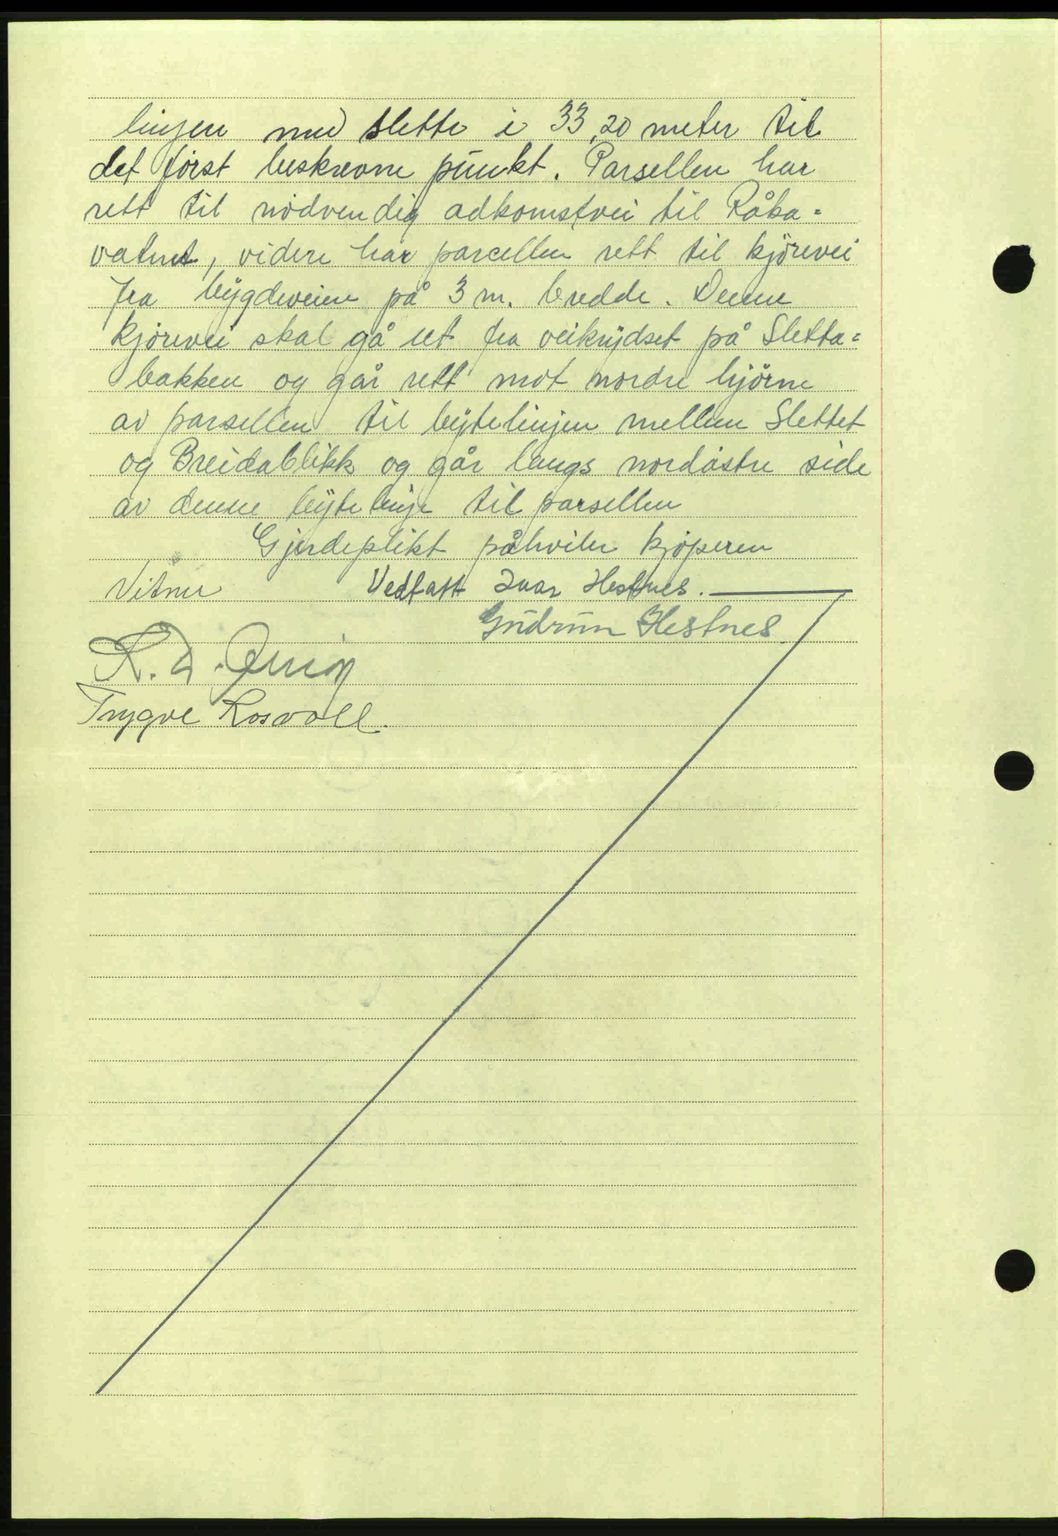 linjen med Slette i 33,20 meter til
det först beskrevne punkt. Parsellen har
rett til nödvendig adkomstvei til Råka=
vatnet, videre har parcellen rett til kjörevei
fra bygdeveien på 3 m. bredde. Denne
kjörevei skal gå ut fra veikrydset på Sletta=
bakken og går rett mot nordre hjörne
av parsellen til bytelinjen mellem Slettet
og Breidablikk og går langs nordöstre side
av denne byte linje til parsellen
Gjerdeplikt påhviler kjöperen
Vitner Vedtatt Ivar Hestnes.
Gudrun Hestnes
K. D.
Trygve Rosvoll.